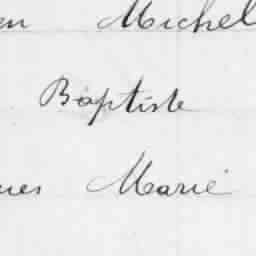 en Michel
Baptiste
ues Marie